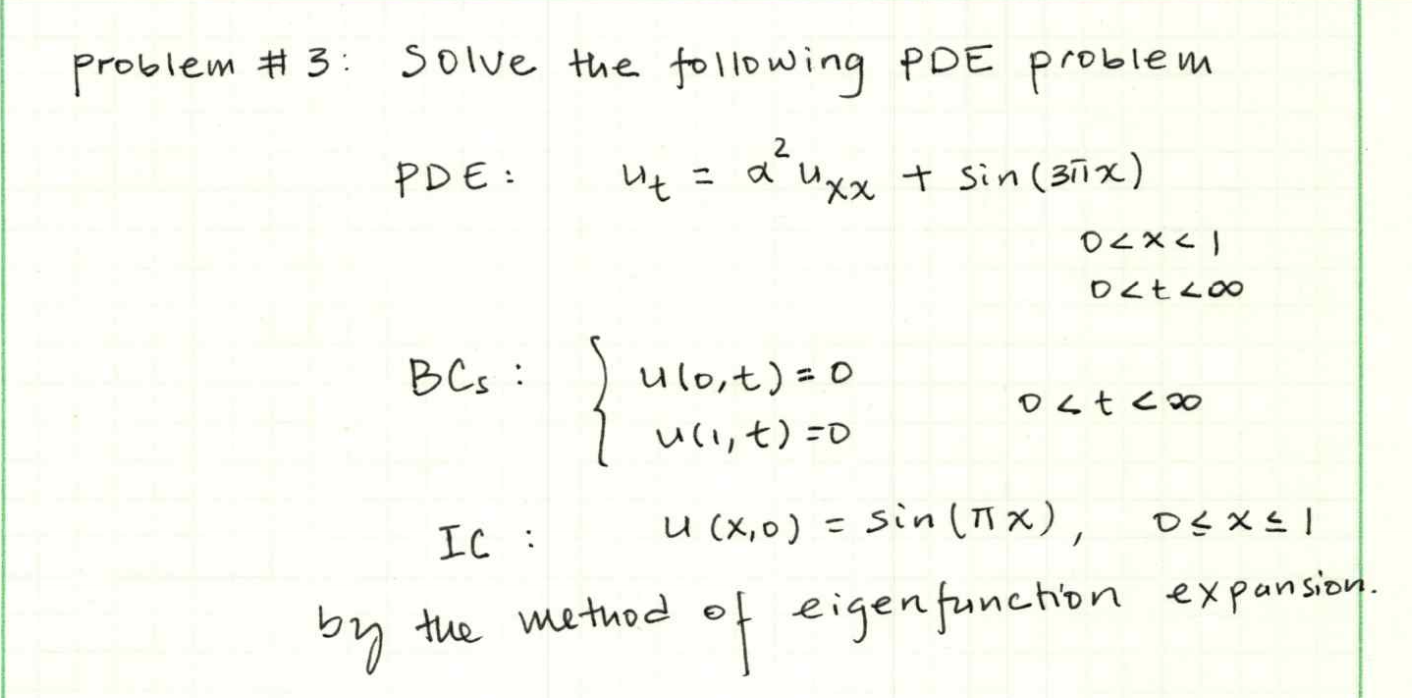 problem # 3: Solve the following PDE problem
PDE: u_t = α² u_xx + sin(3πx)
0<x<1
0<t<∞
BCs: { u(0,t)=0
0<t<∞
u(1,t)=0
IC: u(x,0) = sin(πx), 0≤x≤1
by the method of eigenfunction expansion.